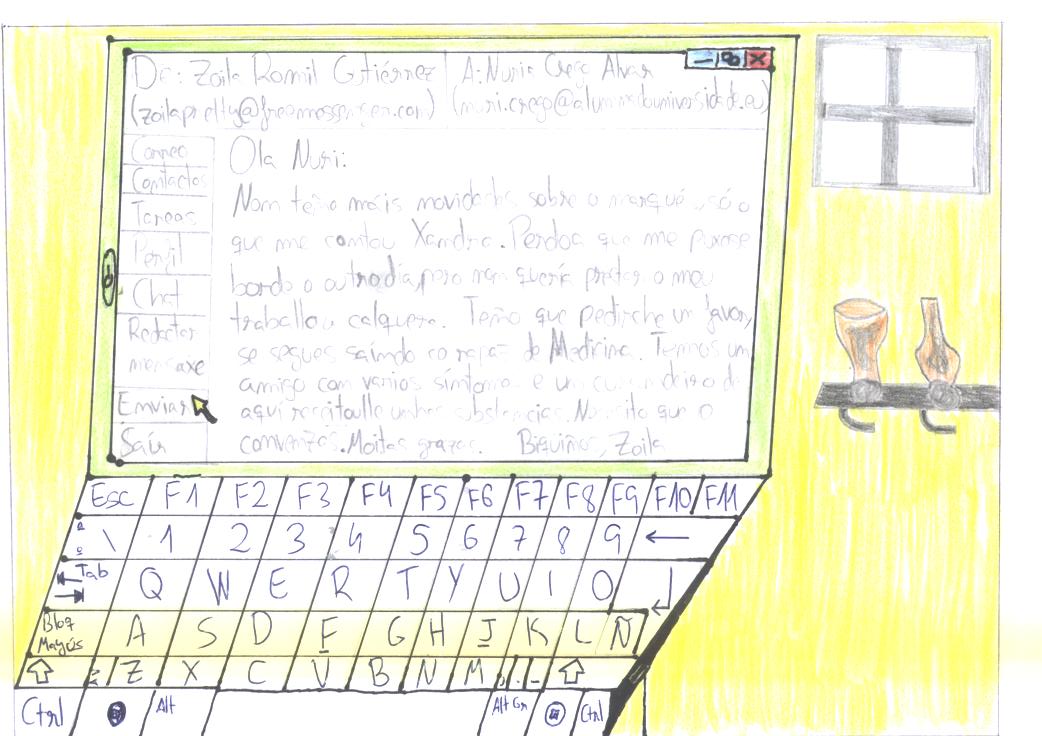 De: Zoila Romil Gtiérrez
(zoilapretty@freemessenger.com)
A: Nuria Crego Alvar
(nuri.crego@alumnadouniversidade.eu)
Correo
Contactos
Tareas
Perfil
Chat
Redactar
mensaxe
Enviar
Saír
Ola Nuri:
Non teño máis novidades sobre o marqués, só o
que me contou Xandra. Perdoa que me puxose
borde o outro día, pero non quería prestar o meu
traballo a calquera. Teño que pedirche un favor,
se segues saíndo co rapaz de Medicina. Temos un
amigo con varios síntomas e un curandeiro de
aquí receitoulle unhas substancias. Necesito que o
convenzas. Moitas grazas. Biquiños, Zoila
Esc F1 F2 F3 F4 F5 F6 F7 F8 F9 F10 F11
ª º \ 1 2 3 4 5 6 7 8 9 ←
Tab Q W E R T Y U I O
Bloq Mayús A S D F G H J K L Ñ
Z X C V B N M , . -
Ctrl Alt Alt Gr Ctrl